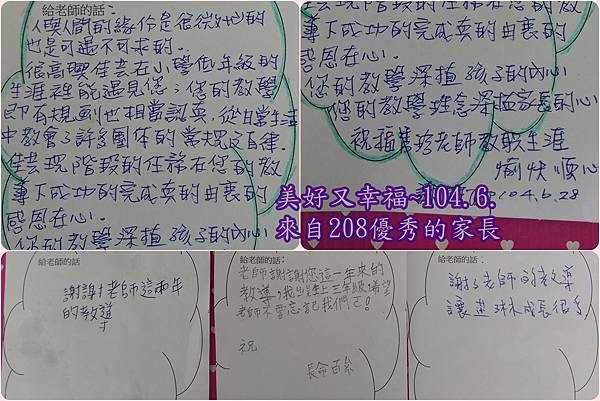 給老師的話：
人與人間的緣份是很微妙的
也是可遇不可求的。
很高興佳芸在小學低年級的
生涯裡能遇見您；您的教學
即有規劃也相當認真，從日常生活
中教會了許多團体的常規及自律。
佳芸現階段的任務在您的教
導下成功的完成真的由衷的
感恩在心。
您的教學深植孩子的內心
導下成功的完成真的由衷的
感恩在心。
您的教學深植孩子的內心
您的教學理念深植家長的心
祝福
老師教職生涯
愉快順心
104.6.28
美好又幸福~104.6.
來自208優秀的家長
給老師的話：
謝謝老師這兩年
的教導
給老師的話：
老師謝謝您這一年來的
教導，我
上三年級，希望
老師不要忘記我們ㄛ！
祝
長命百歲
給老師的話：
謝謝老師的教導
讓
成長很多